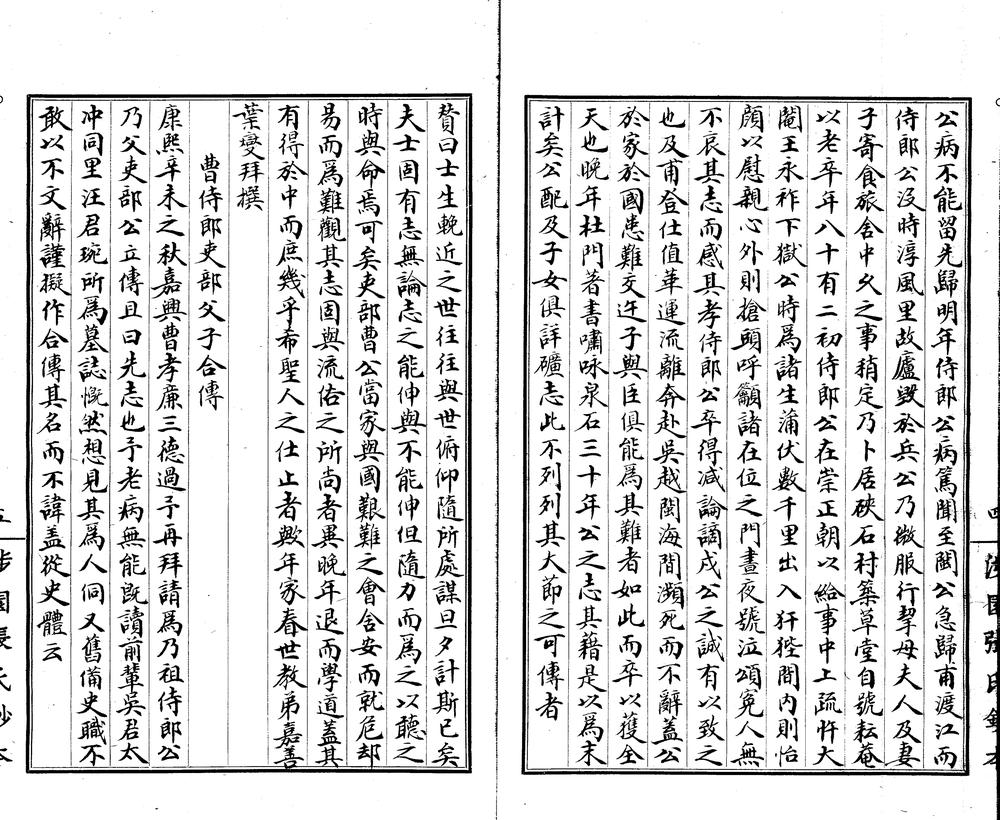 公病不能留先歸明年侍郎公病篤聞至閩公急歸甫渡江而
侍郎公沒時淳風里故廬毀於兵公乃微服行挈母夫人及妻
子寄食旅舍中久之事稍定乃卜居硤石村築草堂自號耘菴
以老卒年八十有二初侍郎公在崇正朝以給事中上疏忤大
閹王永祚下獄公時為諸生蒲伏數千里出入犴狴間內則怡
顏以慰親心外則搶頭呼籲諸在位之門晝夜號泣頌冤人無
不哀其志而感其孝侍郎公卒得減論謫戍公之誠有以致之
也及甫登仕值革運流離奔赴吳越閩海間瀕死而不辭蓋公
於家於國患難交迕子與臣俱能為其難者如此而卒以獲全
天也晚年杜門著書嘯咏泉石三十年公之志其藉是以為末
計矣公配及子女俱詳礦志此不列列其大節之可傳者
贊曰士生輓近之世往往與世俯仰隨所處謀旦夕計斯已矣
夫士固有志無論志之能伸與不能伸但隨力而為之以聽之
時與命焉可矣吏部曹公當家與國艱難之會舍安而就危却
易而為難觀其志固與流俗之所尚者異晚年退而學道蓋其
有得於中而庶幾乎希聖人之仕止者歟年家眷世教弟嘉善
葉燮拜撰
曹侍郎吏部父子合傳
康熙辛未之秋嘉興曹孝廉三德過予再拜請為乃祖侍郎公
乃父吏部公立傳且曰先志也予老病無能既讀前輩吳君太
冲同里汪君琬所為墓誌慨然想見其為人伺又舊備史職不
敢以不文辭謹擬作合傳其名而不諱蓋從史體云